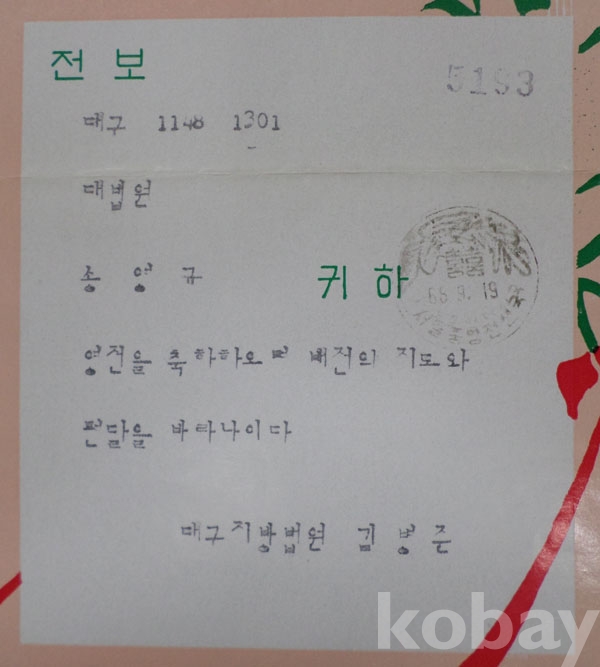 전보
5193
대구 1148 1301
대법원
송 영 규 귀하
66. 9. 19
영전을 축하하오며 배전의 지도와
편달을 바라나이다
대구지방법원 김병준
kobay